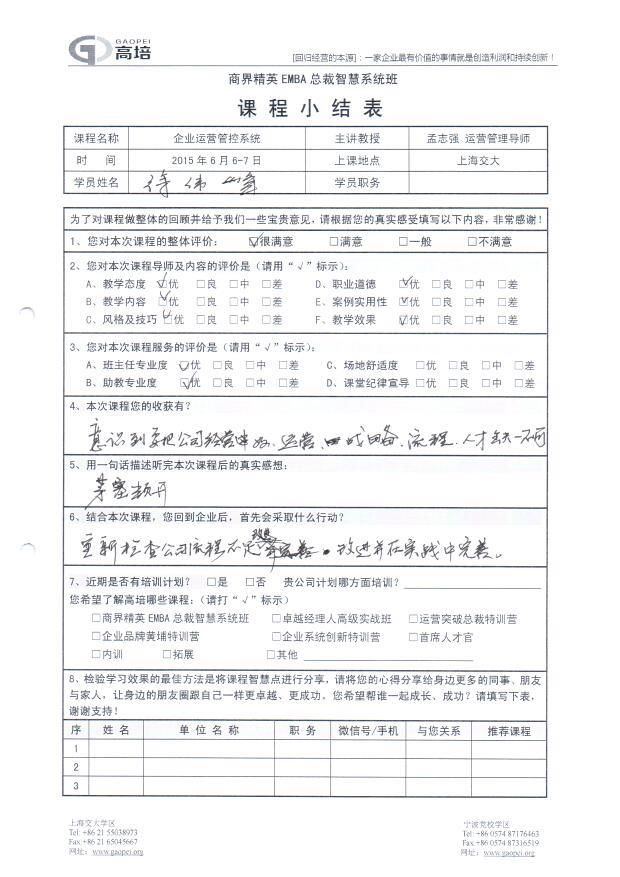 GAOPEI
高培
GC
[回归经营的本源]：一家企业最有价值的事情就是创造利润和持续创新！
商界精英 EMBA 总裁智慧系统班
课 程 小 结 表
课程名称 企业运营管控系统 主讲教授 孟志强 运营管理导师
时 间 2015 年 6 月 6-7 日 上课地点 上海交大
学员姓名 徐伟峰 学员职务
为了对课程做整体的回顾并给予我们一些宝贵意见，请根据您的真实感受填写以下内容，非常感谢！
1、您对本次课程的整体评价： ☑很满意 □满意 □一般 □不满意
2、您对本次课程导师及内容的评价是（请用“√”标示）：
A、教学态度 ☑优 □良 □中 □差 D、职业道德 ☑优 □良 □中 □差
B、教学内容 ☑优 □良 □中 □差 E、案例实用性 ☑优 □良 □中 □差
C、风格及技巧 ☑优 □良 □中 □差 F、教学效果 ☑优 □良 □中 □差
3、您对本次课程服务的评价是（请用“√”标示）：
A、班主任专业度 ☑优 □良 □中 □差 C、场地舒适度 □优 □良 □中 □差
B、助教专业度 ☑优 □良 □中 □差 D、课堂纪律宣导 □优 □良 □中 □差
4、本次课程您的收获有？
意识到要把公司经营 好、运营、战略、流程、人才缺一不可
5、用一句话描述听完本次课程后的真实感想：
茅塞顿开
6、结合本次课程，您回到企业后，首先会采取什么行动？
重新检查公司流程不足 改进并在实战中完善。
7、近期是否有培训计划？ □是 □否 贵公司计划哪方面培训？
您希望了解高培哪些课程：（请打“√”标示）
□商界精英 EMBA 总裁智慧系统班 □卓越经理人高级实战班 □运营突破总裁特训营
□企业品牌黄埔特训营 □企业系统创新特训营 □首席人才官
□内训 □拓展 □其他
8、检验学习效果的最佳方法是将课程智慧点进行分享，请将您的心得分享给身边更多的同事、朋友
与家人，让身边的朋友圈跟自己一样更卓越、更成功。您希望帮谁一起成长、成功？请填写下表，
谢谢支持！
序 姓 名 单 位 名 称 职 务 微信号/手机 与您关系 推荐课程
1
2
3
上海交大学区 宁波党校学区
Tel: +86 21 55038973 Tel: +86 0574 87176463
Fax:+86 21 65045667 Fax:+86 0574 87316519
网址：www.gaopei.org 网址：www.gaopei.org